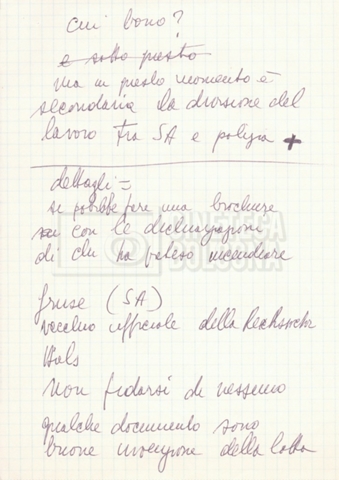 cui bono?
e sotto questo
ma in questo momento è
secondaria la divisione del
lavoro tra SA e polizia +
dettagli =
si potrebbe fare una brochure
con le dichiarazioni
di chi ha potuto incendiare
CINETECA
BOLOGNA
(SA)
vecchio ufficiale della
Non fidarsi di nessuno
qualche documento sono
buone invenzione della